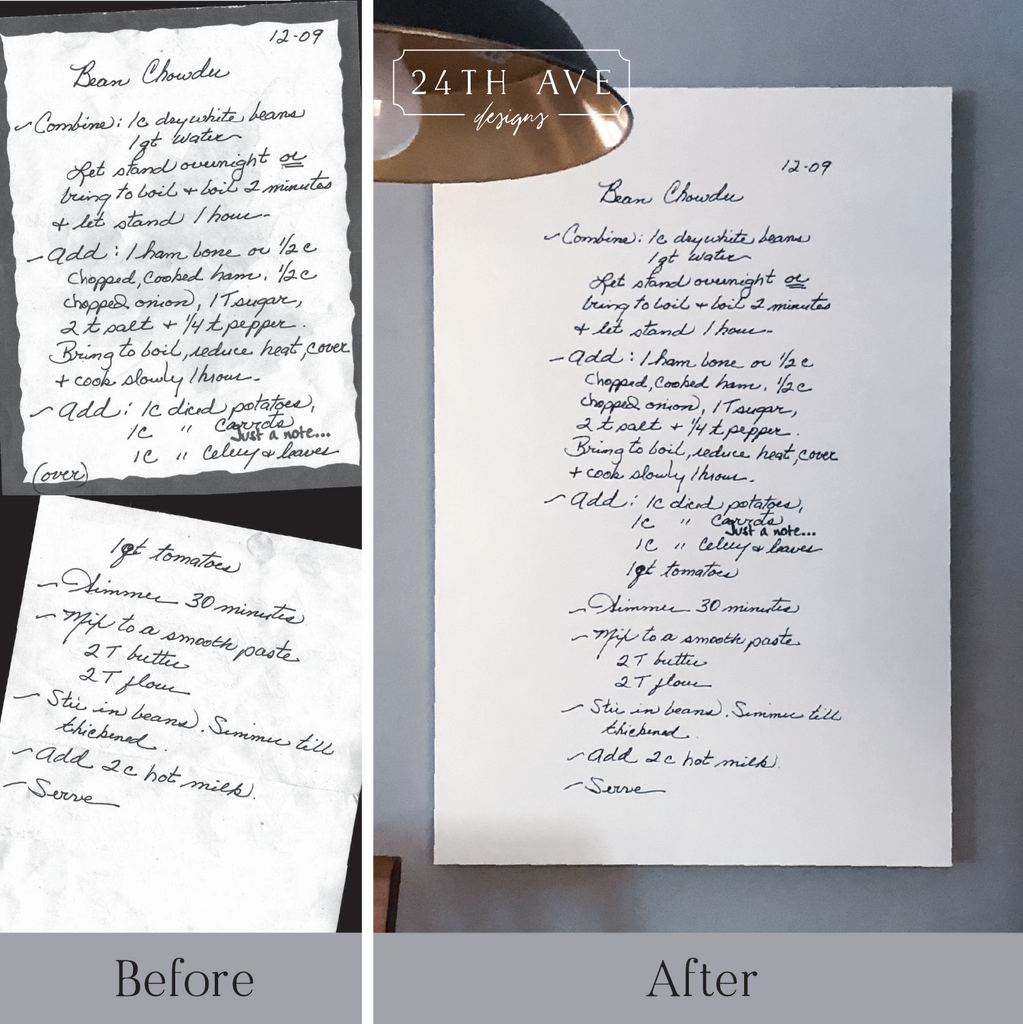 12-09
Bean Chowder
~ Combine: 1c dry white beans
1qt water
Let stand overnight or
bring to boil + boil 2 minutes
+ let stand 1 hour.
- Add: 1 ham bone or 1/2 c
chopped, cooked ham, 1/2 c
chopped onion, 1T sugar,
2 t salt + 1/4 t pepper.
Bring to boil, reduce heat, cover
+ cook slowly 1 hour.
~ Add: 1c diced potatoes,
1c " carrots
Just a note...
1c " celery & leaves
(over)
1qt tomatoes
~ Simmer 30 minutes
~ Mix to a smooth paste
2 T butter
2 T flour
~ Stir in beans. Simmer till
thickened.
~ Add 2c hot milk.
~ Serve
Before
24TH AVE
designs
12-09
Bean Chowder
~ Combine: 1c dry white beans
1qt water
Let stand overnight or
bring to boil + boil 2 minutes
+ let stand 1 hour.
- Add: 1 ham bone or 1/2 c
chopped, cooked ham, 1/2 c
chopped onion, 1T sugar,
2 t salt + 1/4 t pepper.
Bring to boil, reduce heat, cover
+ cook slowly 1 hour.
~ Add: 1c diced potatoes,
1c " carrots
Just a note...
1c " celery & leaves
1qt tomatoes
~ Simmer 30 minutes
~ Mix to a smooth paste
2 T butter
2 T flour
~ Stir in beans. Simmer till
thickened.
~ Add 2c hot milk.
~ Serve
After